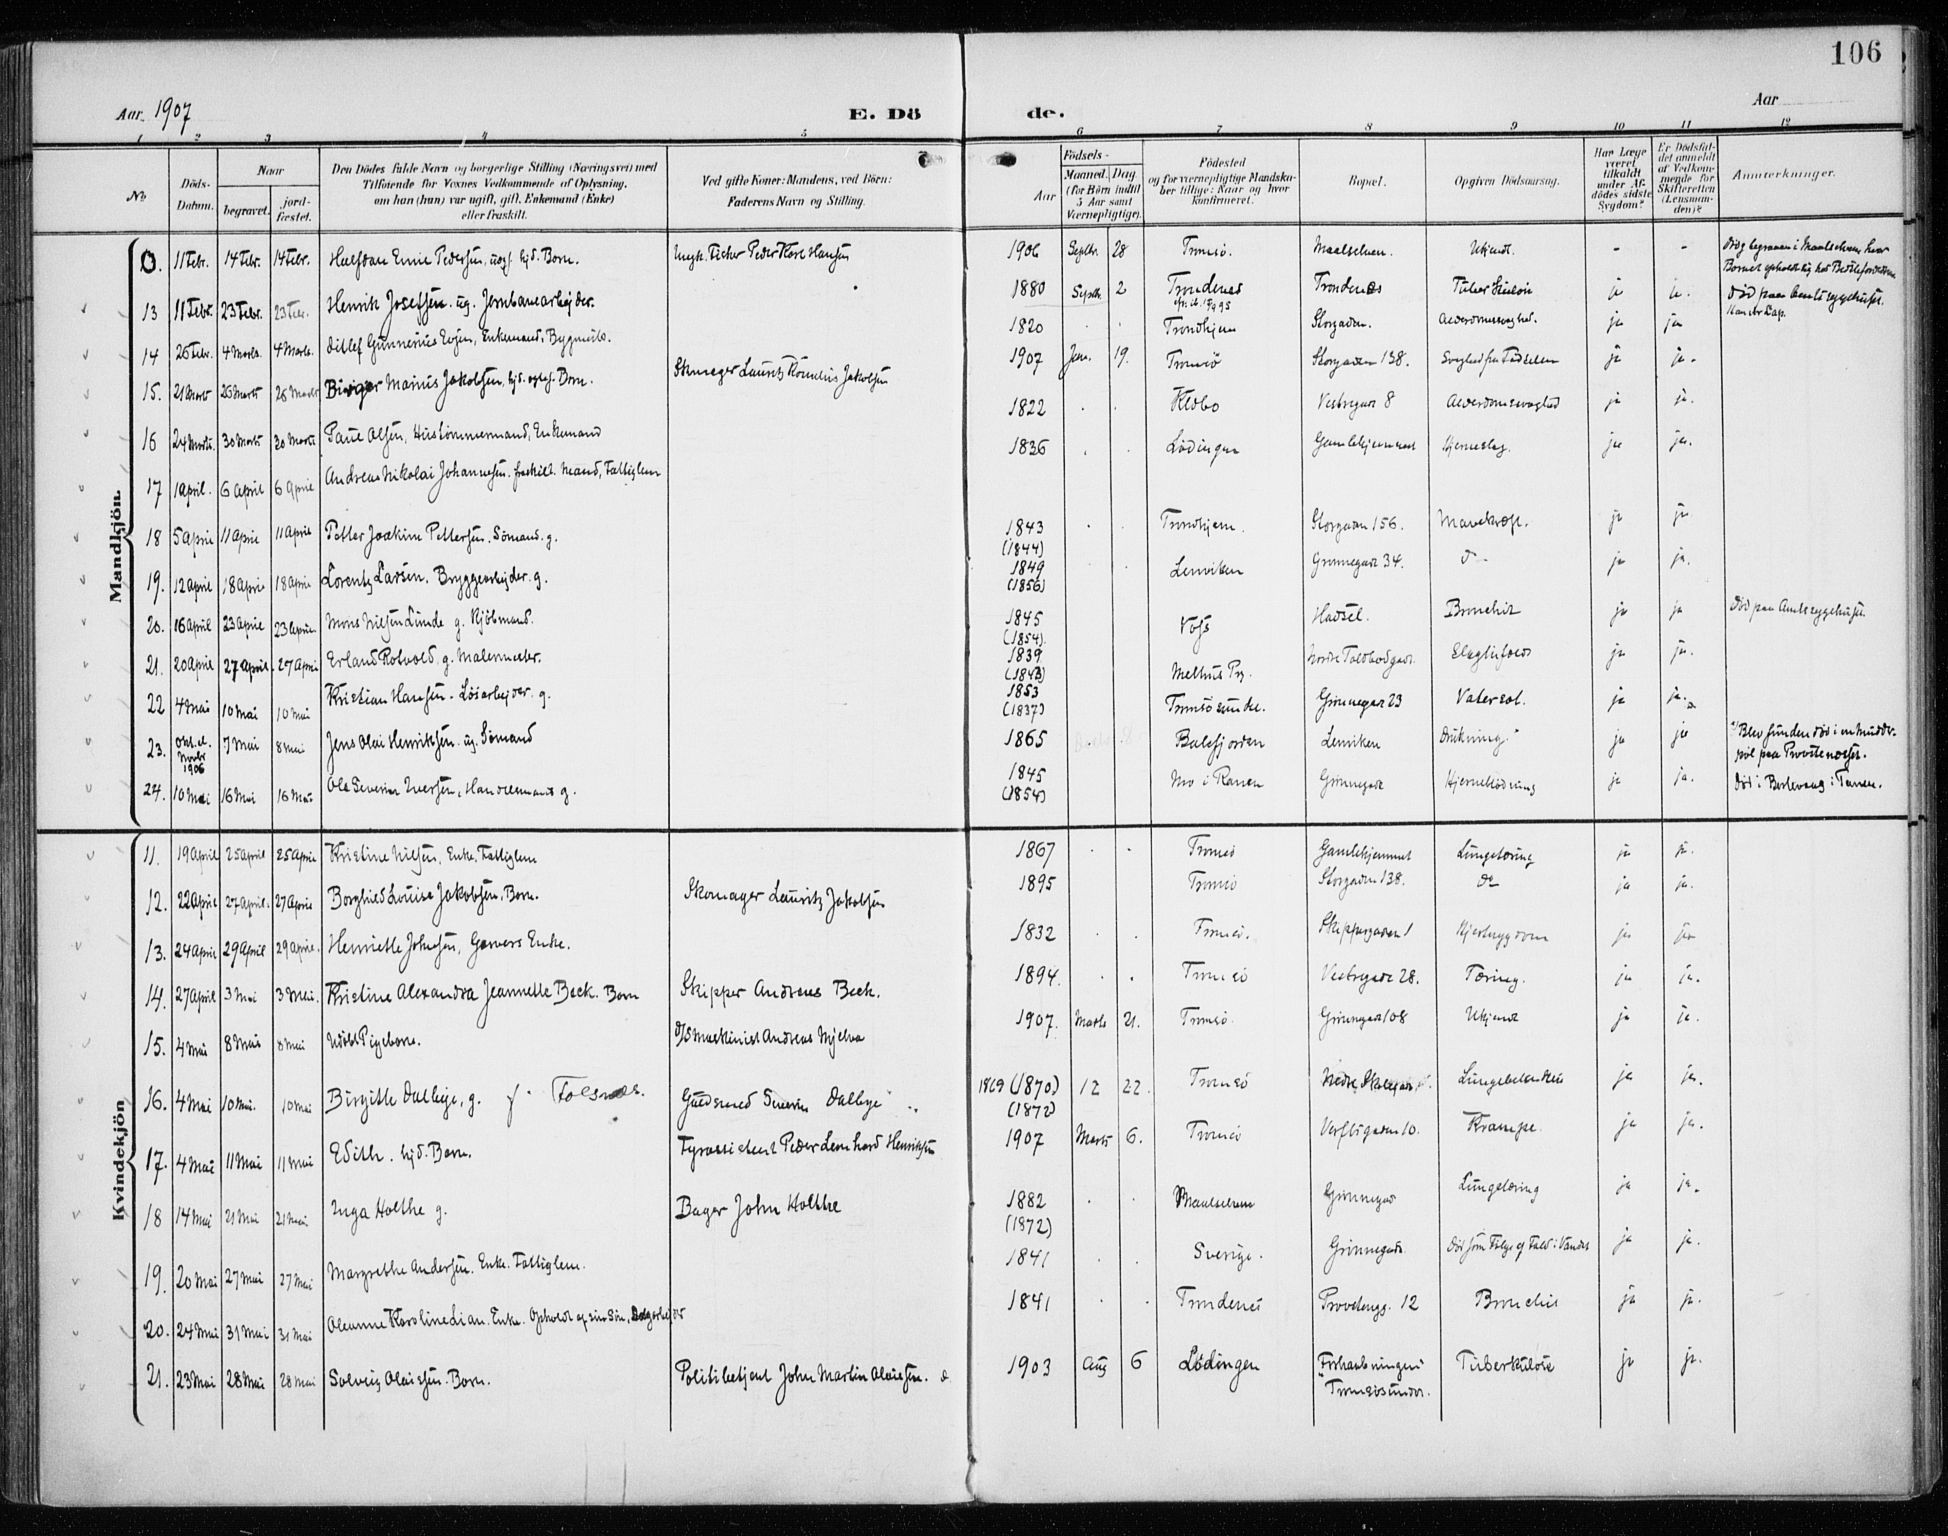 106
Aar 1907
E. Döde.
Aar
1 2 3 4 5 6 7 8 9 10 11 12
No
Döds-Datum.
Naar
begravet.
jordfæstet.
Den Dödes fulde Navn og borgerlige Stilling (Næringsvei) med
Tilföiende for Voxnes Vedkommende af Oplysning,
om han (hun) var ugift, gift, Enkemand (Enke)
eller fraskilt.
Ved gifte Koner: Mandens, ved Börn:
Faderens Navn og Stilling.
Födsels-
Aar
Maaned. Dag
(for Börn indtil
5 Aar samt
Værnepligtige).
Födested
og for værnepligtige Mandskaber tillige: Naar og hvor
konfirmeret.
Bopæl.
Opgiven Dödsaarsag.
Har Læge
været
tilkaldt
under Afdödes sidste
Sygdom?
Er Dödsfaldet anmeldt
af Vedkommende for
Skifteretten
(Lensmanden)?
Anmerkninger.
Mandkjön.
0. 11 Febr. 14 Febr. 14 Febr. Halfdan Emie Pedersen, uægt. hjd. Barn. Ungk. Fisker Peder Kore Hansen 1906 Septbr. 28 Tromsö. Maalselven. Ukjendt. - - Død og begraven i Maalselven hvor Barnet opholdt sig hos Bedsteforældrene
13 11 Febr. 23 Febr. 23 Febr. Henrik Josefsen. ug. Jernbanearbejder. 1880 Septbr. 2 Trondenes Trondenes Tuberkulose ja ja. Død paa Amtssygehuset.
14 26 Febr. 4 Marts. 4 Marts. Ditlef Gunnerius Evjen, Enkemand, Bygmester. 1820 Trondhjem Storgaden. Alderdomssvaghed. ja ja
15. 21 Marts 26 Marts 26 Marts Birger Marius Jakobsen, hjd. Barn. Skomager Lauritz Kornelius Jakobsen 1907 Jan. 19. Tromsö Storgaden 138. Svaghed fra Fødselen ja ja.
16 24 Marts. 30 Marts 30 Marts Paul Olsen, Hustömmermand, Enkemand 1822 Vestregade 8 Alderdomssvaghed ja ja.
17 1 April. 6 April 6 April Andreas Nikolai Johannesen. fraskilt. Mand, Fattiglem 1836 Lødingen Gamlehjemmet Hjerneslag. ja ja.
18 5 April 11 April 11 April Petter Joakim Pettersen. Sömand. g. 1843 (1844) Trondhjem. Storgaden 156. Mavekræft. ja ja
19. 12 April 18 April 18 April Lorentz Larsen. Bryggearbejder. g. 1849 (1856) Lenviken Grønnegade 34. ja ja.
20. 16 April 23 April 23 April Mons Nilsen Lunde g. Kjöbmand. 1845 (1854). Voss Hadsel. Bronchit ja ja Død paa Amtssygehuset.
21. 20 April 27 April. 27 April Erland Rotvold. g. Malermester. 1839 (1843) Melhus Pg. Nordre Toldbodgade. ja ja.
22 4 Mai 10 Mai 10 Mai Kristian Hansen. Lösarbejder. g. 1853 (1837) Tromsösundet. Grønnegade 23 Vatersot. ja ja.
23. Novbr 1906 7 Mai 8 Mai Jens Olai Henriksen. ug. Sömand 1865 Balsfjorden Lenviken Drukning. ja ja Blev funden død i en
24. 10 Mai 16 Mai 16 Mai Ole Severin Iversen, Handelsmand g. 1845 (1854) Mo i Ranen Grønnegade Hjerneblødning ja ja. Død i Berlevaag i Tanen.
Kvindekjön
11. 19 April 25 April 25 April Kristine Nilsen, Enke, Fattiglem 1867 Tromsö Gamlehjemmet Lungetæring ja ja.
12. 22 April 27 April. 27 April Borghild Louise Jakobsen, Barn. Skomager Lauritz Jakobsen 1895 Tromsö Storgaden 138. do ja ja.
13. 24 April 29 April 29 April. Henriette Johnsen, Garvers Enke. 1832 Tromsö. Skippergaden 1 Hjertesygdom ja ja
14. 27 April 3 Mai 3 Mai. Kristine Alexandra Jeannette Beck. Barn Skipper Andreas Beck. 1894. Tromsö Vestregade 28. Tæring. ja ja.
15. 4 Mai 8 Mai 8 Mai Udöbt Pigebarn. D/S Maskinist Andreas Mjelva 1907. Marts 21. Tromsö Grønnegade 108 Ukjendt ja ja.
16. 4 Mai 10 Mai. 10 Mai Birgitte Dalbye, g. f. Folsnæs. Guldsmed Severin Dalbye 1869 (1870) (1872) 12 22. Tromsö Nedre Skolegade Lungebetændelse ja ja.
17. 4 Mai 11 Mai 11 Mai Edith. hjd. Barn. Fyrassistent Peder Leonhard Henriksen 1907 Marts 6. Tromsö Verftsgaden 10. Krampe. ja ja.
18 14 Mai 21 Mai 21 Mai Inga Holthe g. Bager John Holthe 1882 (1872) Maalselven Grønnegade Lungetæring ja ja.
19. 20 Mai 27 Mai 27 Mai Margrethe Andersen. Enke. Fattiglem. 1841 Sverige. Grønnegade. Død som Følge af Fald i Vandet ja ja.
20. 24 Mai 31 Mai 31 Mai Oleanne Karoline Lian. Enke. Opholdt af sin Søn, 1841 Trondenes 12 Bronchit ja ja.
21. 23 Mai 28 Mai 28 Mai Solveig Olaissen. Barn. Politibetjent John Martin Olaissen. 1903 Aug 6 Lödingen Forhaabningen i Tromsösundet. Tuberkulose ja ja.